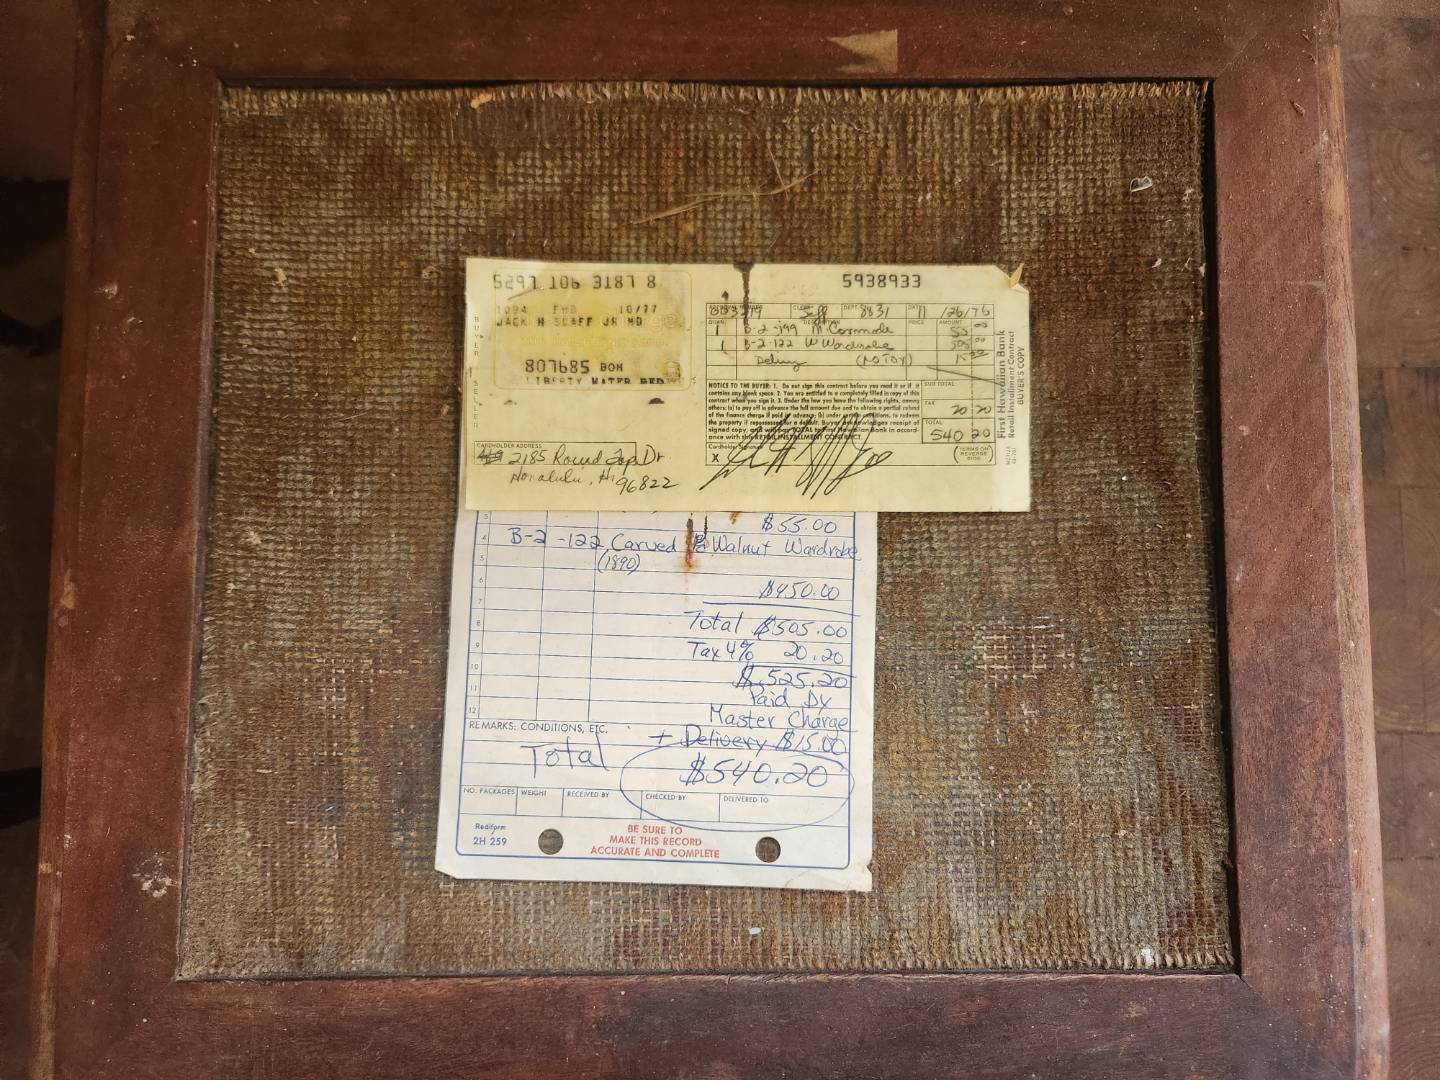 5297 106 3187 8
5938933
10/77
JACK H SCAFF JR MD
807685 BOH
LIBERTY WATER BED
BUYER
SELLER
CLERK
DEPT. 8431
DATE 11/26/76
QUAN. DESCRIPTION PRICE AMOUNT
1 B-2-199 M. Commode 55 00
1 B-2-122 W Wardrobe
Delivery (NO TAX) 15 00
NOTICE TO THE BUYER: 1. Do not sign this contract before you read it or if it
contains any blank space. 2. You are entitled to a completely filled in copy of this
contract when you sign it. 3. Under the law you have the following rights, among
others: (a) to pay off in advance the full amount due and to obtain a partial refund
of the finance charge if paid in advance; (b) under certain conditions, to redeem
the property if repossessed for a default. Buyer acknowledges receipt of
signed copy, and will pay TOTAL to First Hawaiian Bank in accord-
ance with the RETAIL INSTALLMENT CONTRACT.
SUB TOTAL
TAX 20 20
TOTAL 540 20
Cardholder Signature
X
(TERMS ON
REVERSE
SIDE)
First Hawaiian Bank
Retail Installment Contract
BUYER'S COPY
CARDHOLDER ADDRESS
2185 Round Top Dr
Honolulu, Hi 96822
3 $55.00
4 B-2 -122 Carved Walnut Wardrobe
5 (1890)
6 $450.00
7
8 Total $505.00
9 Tax 4% 20.20
10 $525.20
11 Paid by
12 Master Charge
REMARKS: CONDITIONS, ETC.
+ Delivery $15.00
Total $540.20
NO. PACKAGES WEIGHT RECEIVED BY CHECKED BY DELIVERED TO
Rediform
2H 259
BE SURE TO
MAKE THIS RECORD
ACCURATE AND COMPLETE